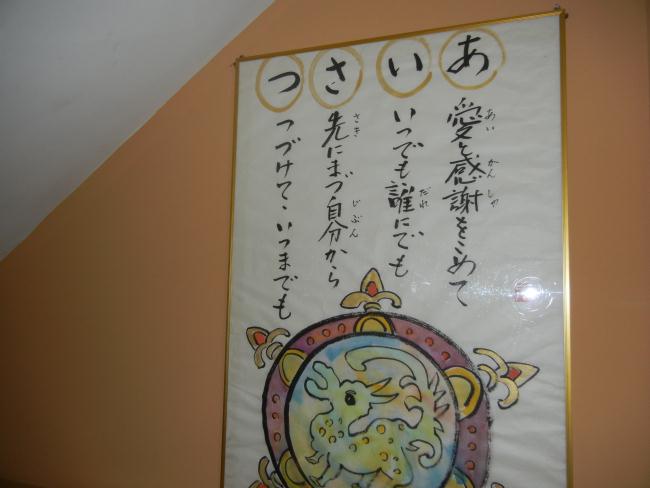 あいさつ
愛と感謝をこめて
あい かんしゃ
いつでも誰にでも
だれ
先にまづ自分から
さき じぶん
つづけて・いつまでも